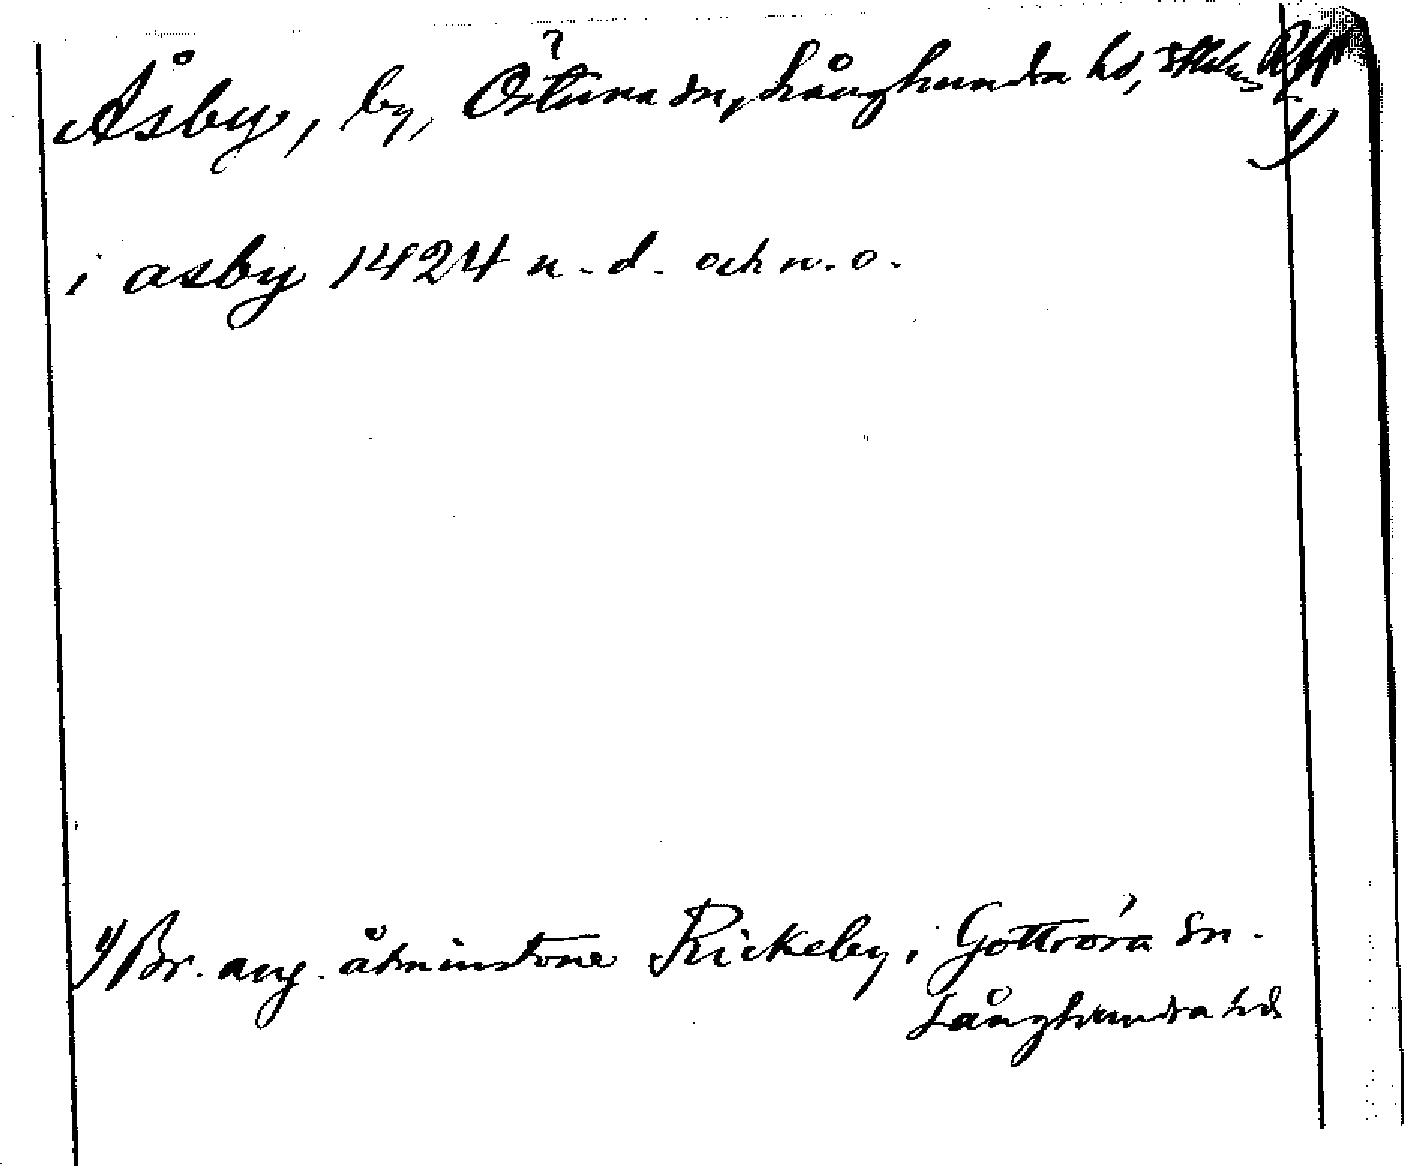 Åsby, by, Östuna sn, Långhundra hd, Sthlms
1)
i asby 1424 n. d. och n. o.
1) Br. ang. åtminstone Rickeby i Gottröra sn.
Långhundra hd